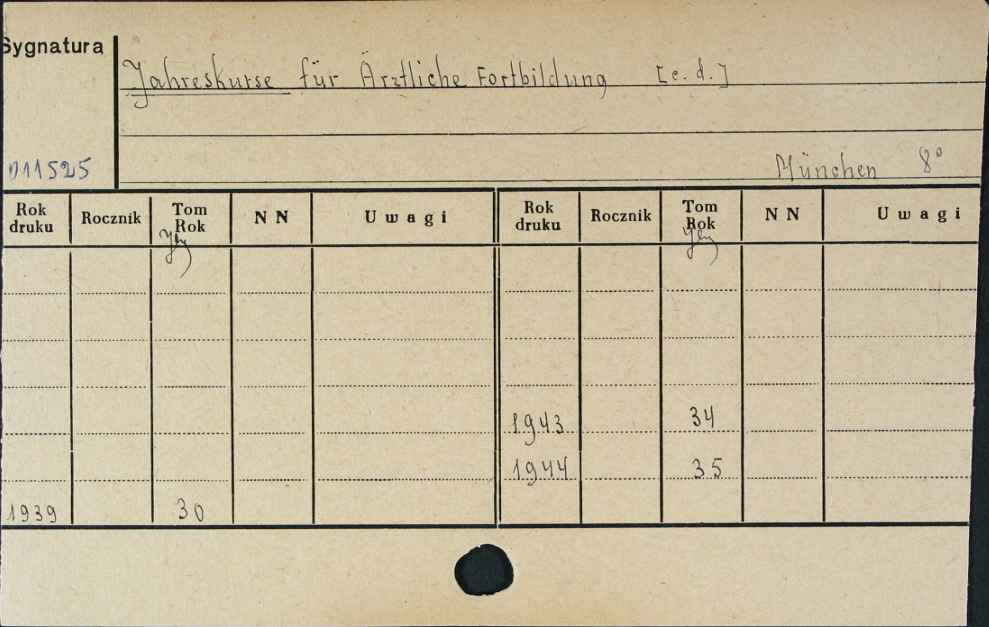 Sygnatura
Jahreskurse für Ärztliche Fortbildung [c. d.]
011525
München 8°
Rok druku Rocznik Tom Rok N N U w a g i Rok druku Rocznik Tom Rok N N U w a g i
1943 34
1944 35
1939 30